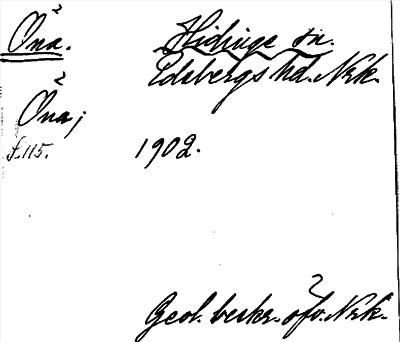 Öna.
Hidinge sn.
Edsbergs hd. Nrk.
Öna;
s. 115.
1902.
Geol. beskr. öfv. Nrk.